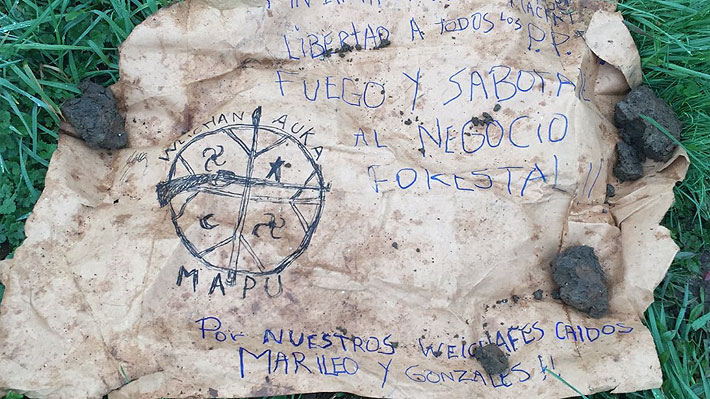 LIBERTAD A TODOS LOS P.P.
FUEGO Y SABOTAJE
AL NEGOCIO
FORESTAL !!
WEICHAN AUKA
MAPU
POR NUESTROS WEICHAFES CAIDOS
MARILEO Y GONZALES!!